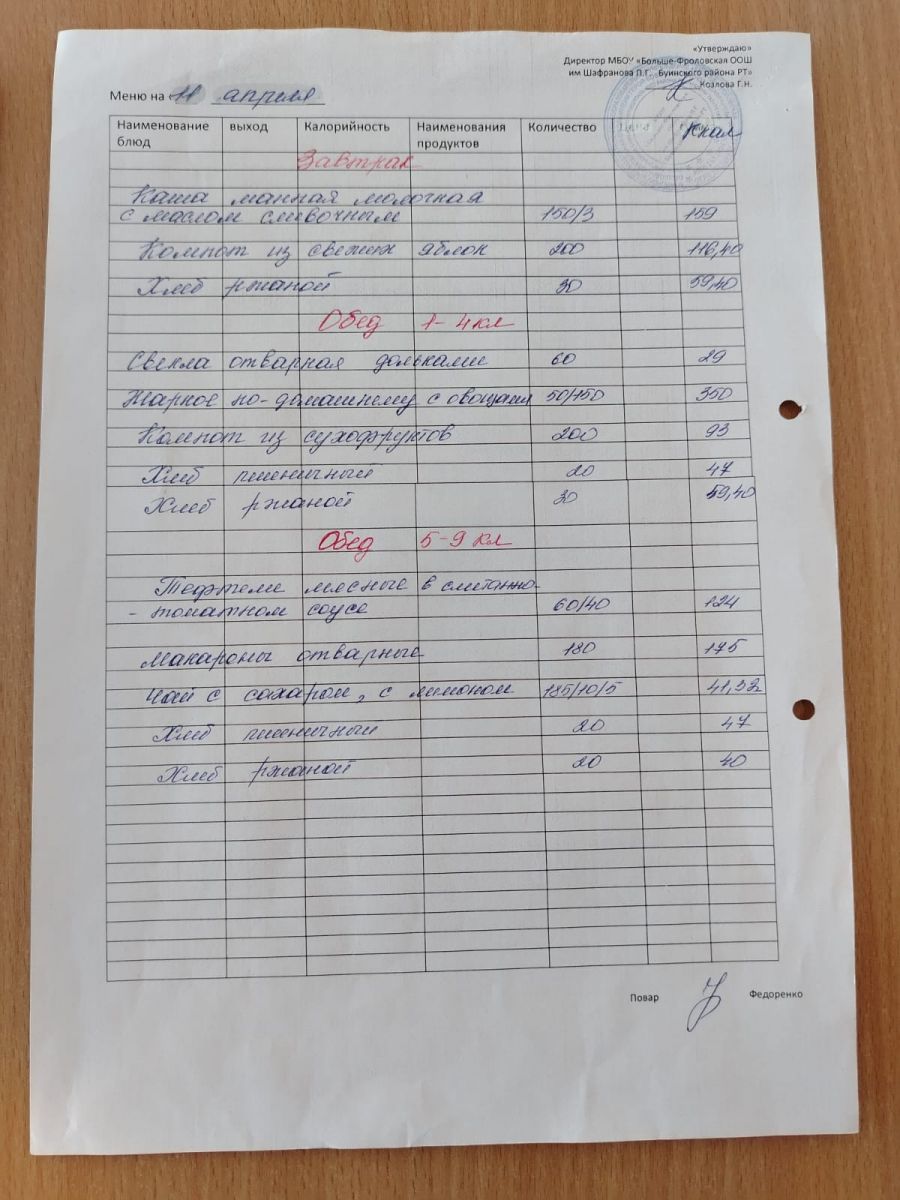 «Утверждаю»
Директор МБОУ «Больше-Фроловская ООШ
им Шафранова П.Г. Буинского района РТ»
Козлова Г.Н.
Меню на 11 апреля
Наименование блюд выход Калорийность Наименования продуктов Количество Цена Ккал
Завтрак
Каша манная молочная
с маслом сливочным 150/3 159
Компот из свежих яблок 200 116,40
Хлеб ржаной 30 59,40
Обед 1-4 кл
Свекла отварная дольками 60 29
Жаркое по-домашнему с овощами 50/150 350
Компот из сухофруктов 200 93
Хлеб пшеничный 20 47
Хлеб ржаной 30 59,40
Обед 5-9 кл
Тефтели мясные в сметанно-
-томатном соусе 60/40 124
Макароны отварные 180 175
Чай с сахаром, с лимоном 185/10/5 41,32
Хлеб пшеничный 20 47
Хлеб ржаной 20 40
Повар Федоренко